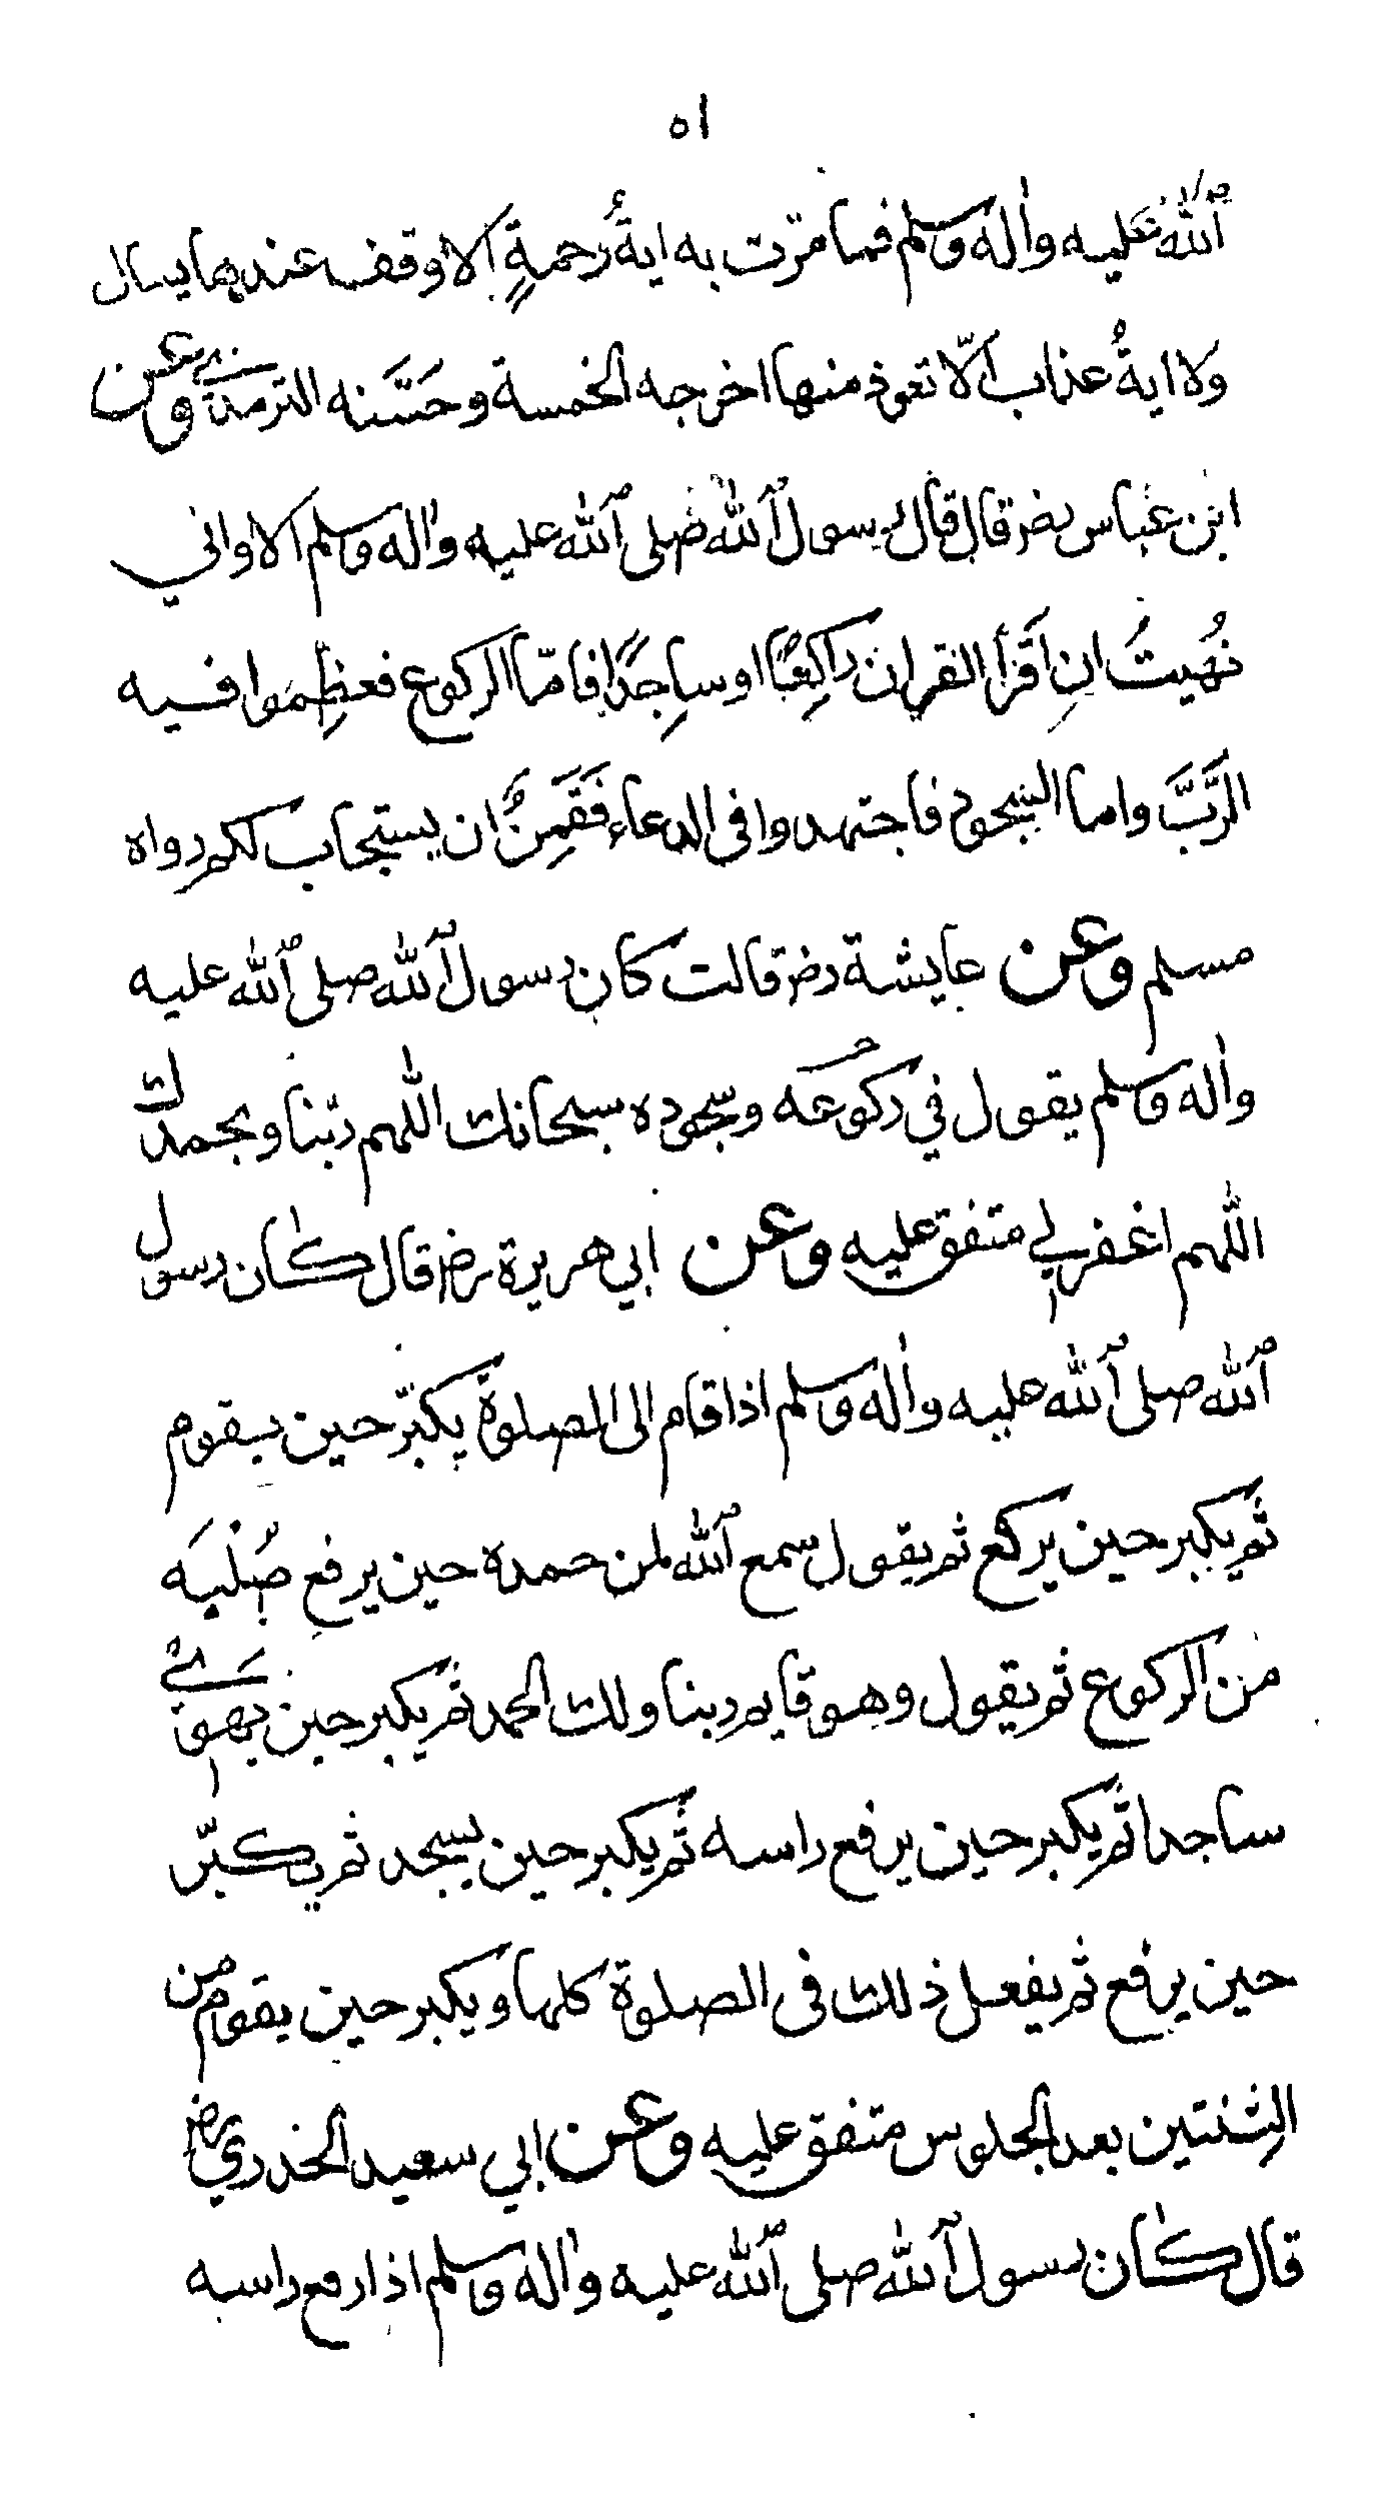 ٥١
ٱلله عليه واٰله وسلم فما مرّت به ايةُ رحمةٍ الا وقف عندها يسال
ولا ايةُ عذاب الّا تعوذ منها اخرجه الخمسة وحَسَّنه الترمذي وعن
ابن عباس رضـ قال قال رسول ٱلله صلى ٱلله عليه واٰله وسلم الا واني
نُهيتُ ان اَقرأ القران راكِعًا او ساجِدًا فامّا الركوع فعظِّموا فيه
الرَّبَّ واما السجود فاجتهدوا فى الدعاء فَقَمِنٌ ان يستجاب لكم رواه
مسلم وعن عايشة رضـ قالت كان رسول ٱلله صلى ٱلله عليه
واٰله وسلم يقول في ركوعه وسجوده سبحانك اللهم ربّنا وبحمدك
اللهم اغفر لي متفق عليه وعن ابي هريرة رضـ قال كان رسول
ٱلله صلى ٱلله عليه واٰله وسلم اذا قام الى الصلوة يكبّر حين يقوم
ثم يكبر حين يركع ثم يقول سمع ٱلله لمن حمده حين يرفع صُلْبَه
من الركوع ثم يقول وهو قايم ربنا ولك الحمد ثم يكبر حين يهوي
ساجدا ثم يكبر حين يرفع راسه ثم يكبر حين يسجد ثم يكبّر
حين يرفع ثم يفعل ذلك فى الصلوة كلها ويكبر حين يقوم من
الثِنتين بعد الجلوس متفق عليه وعن ابي سعيد الخدري رضـ
قال كان رسول ٱلله صلى ٱلله عليه واٰله وسلم اذا رفع راسه